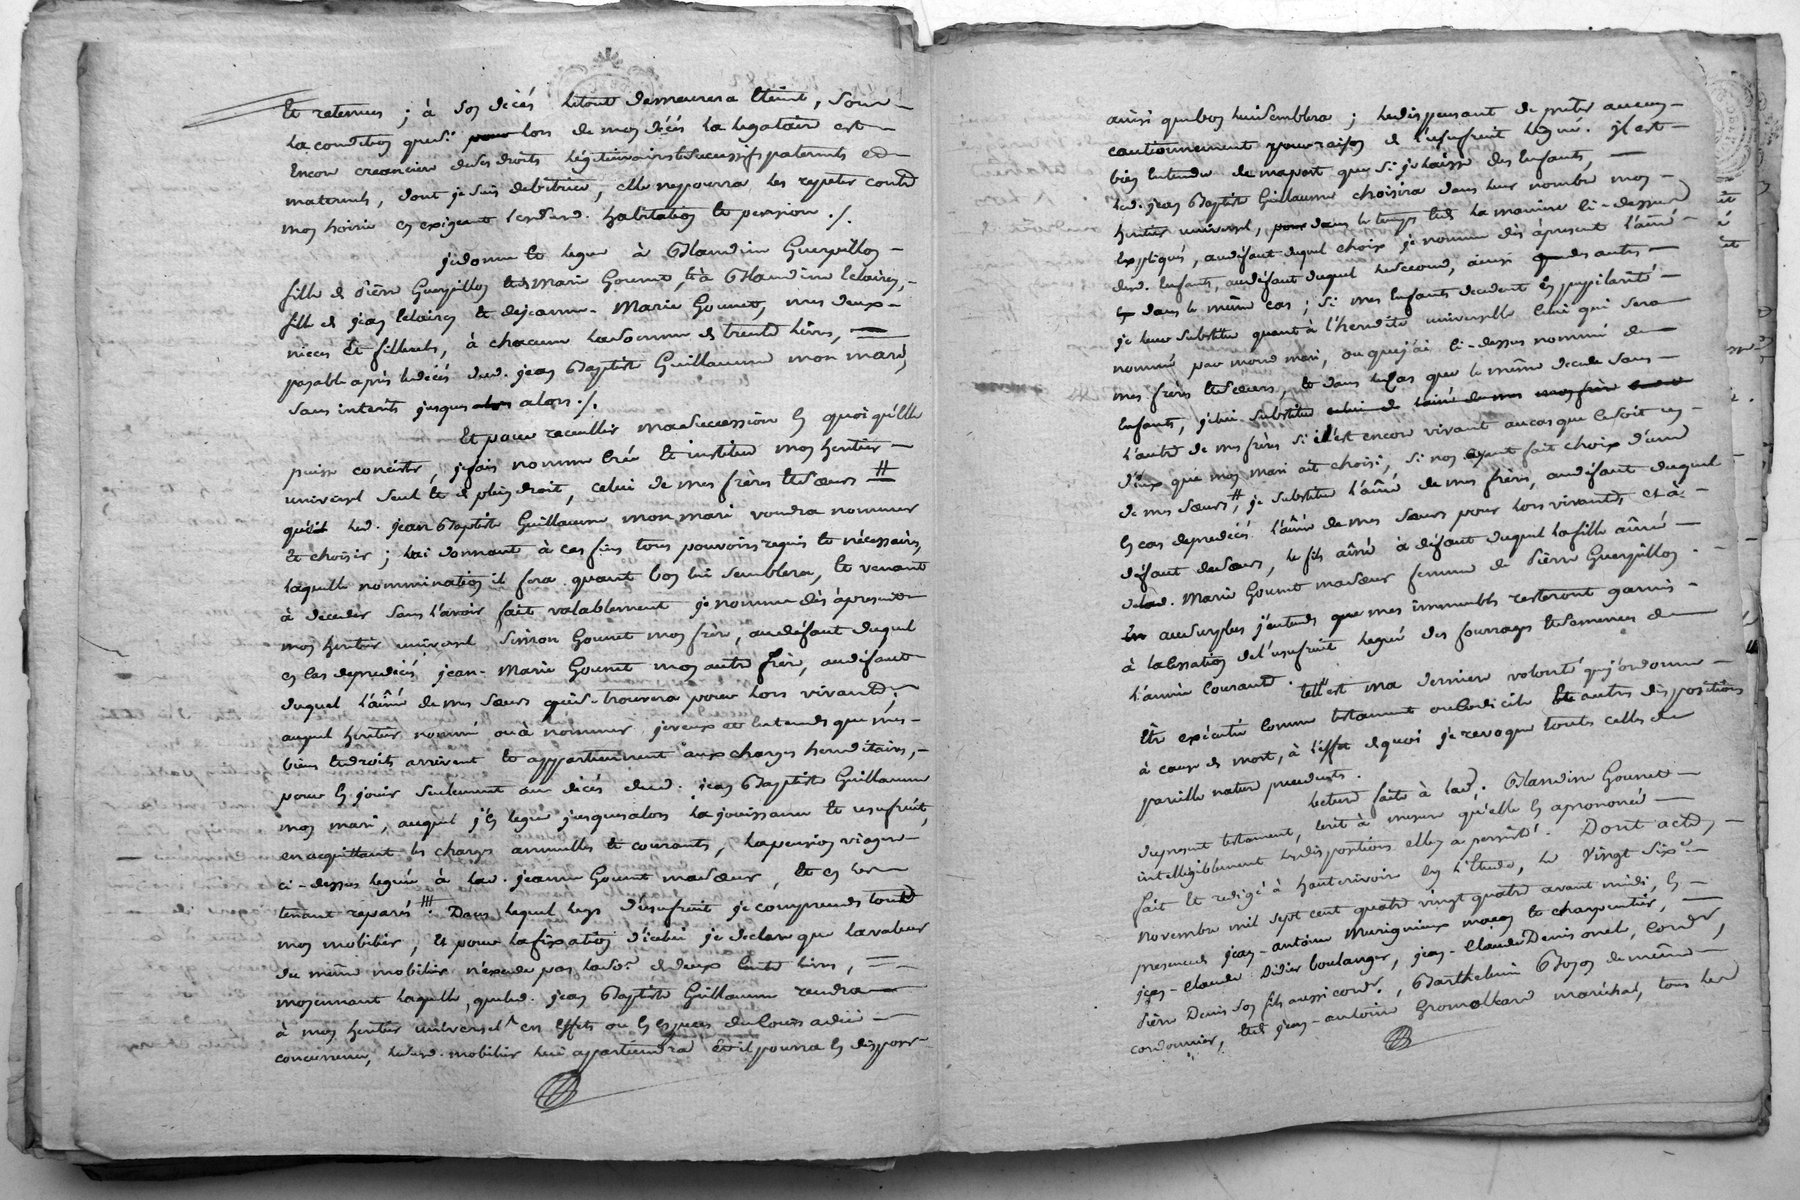 et retenues ; à son décés letout demeurera eteint, sous
la condition que si pour lors de mon décés la legataire est
encore creanciere de ses droits légitimaires et successifs paternels et
maternels, dont je suis debitrice, elle ne pourra les repeter contre
mon hoirie en exigeant lesdites habitation et pension ./.
je donne et legue à Blandine Guerpillon
fille de Pierre Guerpillon et de Marie Gounet, et à Blandine Eclaircy,
fille de jean Eclaircy et de jeanne-Marie Gounet, mes deux
nieces et filleules, à chacune la somme de trente livres,
payable après le décés dud. jean Baptiste Guillaume mon mari,
sans interêts jusques alors alors ./.
Et pour recueillir ma succession en quoi qu'elle
puisse concister, je fais nomme crée et institue mon heritier
universel seul et de plein droit, celui de mes frères et sœurs #
que led. jean Baptiste Guillaume mon mari voudra nommer
et choisir ; lui donnant à ces fins tous pouvoirs requis et nécessaires,
laquelle nommination il fera quant bon lui semblera, et venant
à deceder sans l'avoir fait valablement je nomme dès àpresent
mon heritier universel Simon Gounet mon frère, audéfaut duquel
en cas de predécés jean-Marie Gounet mon autre frère, audéfaut
duquel l'aînée de mes sœurs qui se trouvera pour lors vivante ;
auquel heritier nommé ou à nommer je veux et entends que mes
biens et droits arrivent et appartiennent aux charges hereditaires,
pour en jouir seulement au décés dud. jean Baptiste Guillaume
mon mari, auquel j'en legue jusqu'alors la jouissance et usufruit,
en acquittant les charges annuelles et courantes, la pension viagere
ci-dessus leguée à lad. jeanne Gounet ma sœur, et en les
tenant reparés # Dans lequel legs d'usufruit je comprends tout
mon mobilier, et pour la fixation d'icelui je declare que la valeur
du même mobilier n'excede pas la so.e de deux cents livres,
moyennant laquelle, que led. jean Baptiste Guillaume rendra
à mon heritier universel en effets ou en especes du cours à due
concurrence, led. mobilier lui appartiendra et il pourra en disposer
ainsi que bon lui semblera ; le dispensant de prêter aucun
cautionnement pour raison de l'usufruit legué. il est
bien entendu de ma part que si je laisse des enfants,
led. jean Baptiste Guillaume choisira dans leur nombre mon
heritier universel, pour dans le temps et de la maniere ci-dessus
expliqués, audéfaut duquel choix je nomme dès àpresent l'aîné
desd. enfants, audéfaut duquel le second, ainsi des autres
dans le même cas ; si mes enfants decedent en pupilarité
je leur substitue quant à l'heredité universelle celui qui sera
nommé par mond. mari, ou que j'ai ci-dessus nommé de
mes frères et sœurs, et dans le cas que le même decede sans
enfants, je lui substitue celui de l'aîné de mes
l'autre de mes frères s'il est encore vivant au cas que ce soit un
d'eux que mon mari ait choisi, si non ayant fait choix d'une
de mes sœurs #, je substitue l'aîné de mes frères, audéfaut duquel
en cas de predécés l'aînée de mes sœurs pour lors vivante, et à
défaut de sœurs, le fils aîné à défaut duquel la fille aînée
de lad. Marie Gounet ma sœur femme de Pierre Guerpillon.
Au surplus j'entends que mes immeubles resteront garnis
à la cessation de l'usufruit legué des fourrages et semences de
l'année courante. tell' est ma derniere volonté que j'ordonne
être exécutée comme testament ou codicile et autres dispositions
à cause de mort, à l'effet de quoi je revoque toutes celles de
pareille nature precedentes.
lecture faite à lad. Blandine Gounet
du present testament, ecrit à mesure qu'elle en a prononcé
intelligiblement les dispositions elle y a persisté. Dont acte,
fait et redigé à hauterivoire en l'étude, le vingt six.e
novembre mil sept cent quatre vingt quatre avant midi, en
presence de jean-antoine Murigneux maçon et charpentier,
jean-Claude Didier boulanger, jean-Claude Denis onel, cord.r,
Pierre Denis son fils aussi cord.r, Barthelemi Boyon de même
cordonnier, et de jean-antoine Gromollard maréchal, tous de